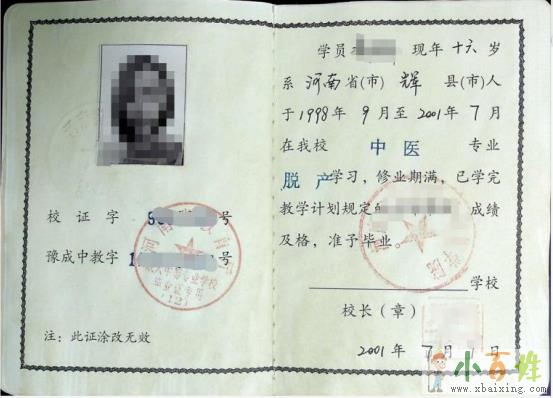 校证字 号
豫成中教字 1 号
注：此证涂改无效
学员 现年十六岁
系河南省(市)辉县(市)人
于1998年9月至2001年7月
在我校 中医 专业
脱产学习，修业期满，已学完
教学计划规定的 成绩
及格，准予毕业。
学校
校长（章）
2001年7月 日
小百姓
www.xbaixing.com